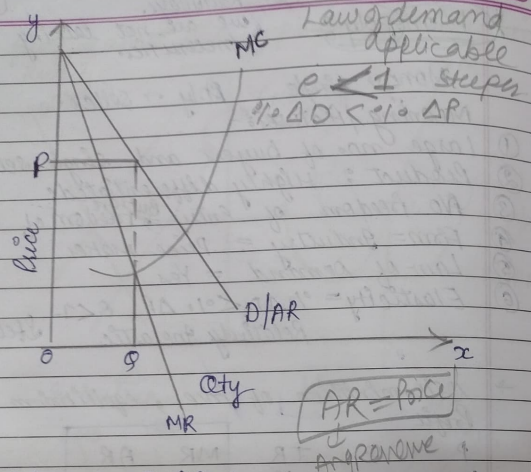 Law of demand
applicable
e < 1 steeper
% ΔD < % ΔP
y
MC
P
Price
D/AR
O
Q
x
Qty
MR
AR = Price